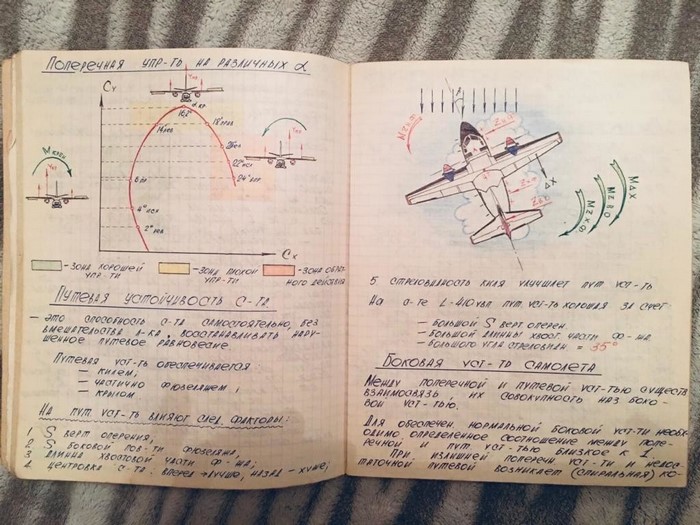 Поперечная упр-ть на различных α
Cy
α кр
16,5°
14 лев
18° прав
6 лев
22° исл
24° лев
4° исл
2° рев
Cx
- Зона хорошей упр-ти
- Зона плохой упр-ти
- Зона обратного действия
Путевая устойчивость с-та
- это способность с-та самостоятельно, без
вмешательства л-ка, восстанавливать нару-
шенное путевое равновесие.
Путевая уст-ть обеспечивается:
- килем,
- частично фюзеляжем,
- крылом
На пут. уст-ть влияют след. факторы:
1 S верт оперения,
2 S боковой пов-ти фюзеляжа,
3 длинна хвостовой части ф-жа;
4 центровка с-та: вперед → лучше, назад - хуже;
ΔX
MΔX
5 стреловидность киля улучшает пут уст-ть
На с-те L-410увп пут. уст-ть хорошая за счет
- большой S верт оперен.
- большой длинны хвост. части ф-жа
- большого угла стреловидн. = 35°
Боковая уст-ть самолета
Между поперечной и путевой уст-тью существ
взаимосвязь, их совокупность наз боко-
вой уст-тью.
Для обеспечен. нормальной боковой уст-ти необх-
одимо определенное соотношение между попе-
речной и пут уст-тью близкое к 1.
При излишней поперечн уст-ти и недос-
таточной путевой возникает (спиральная) ко-